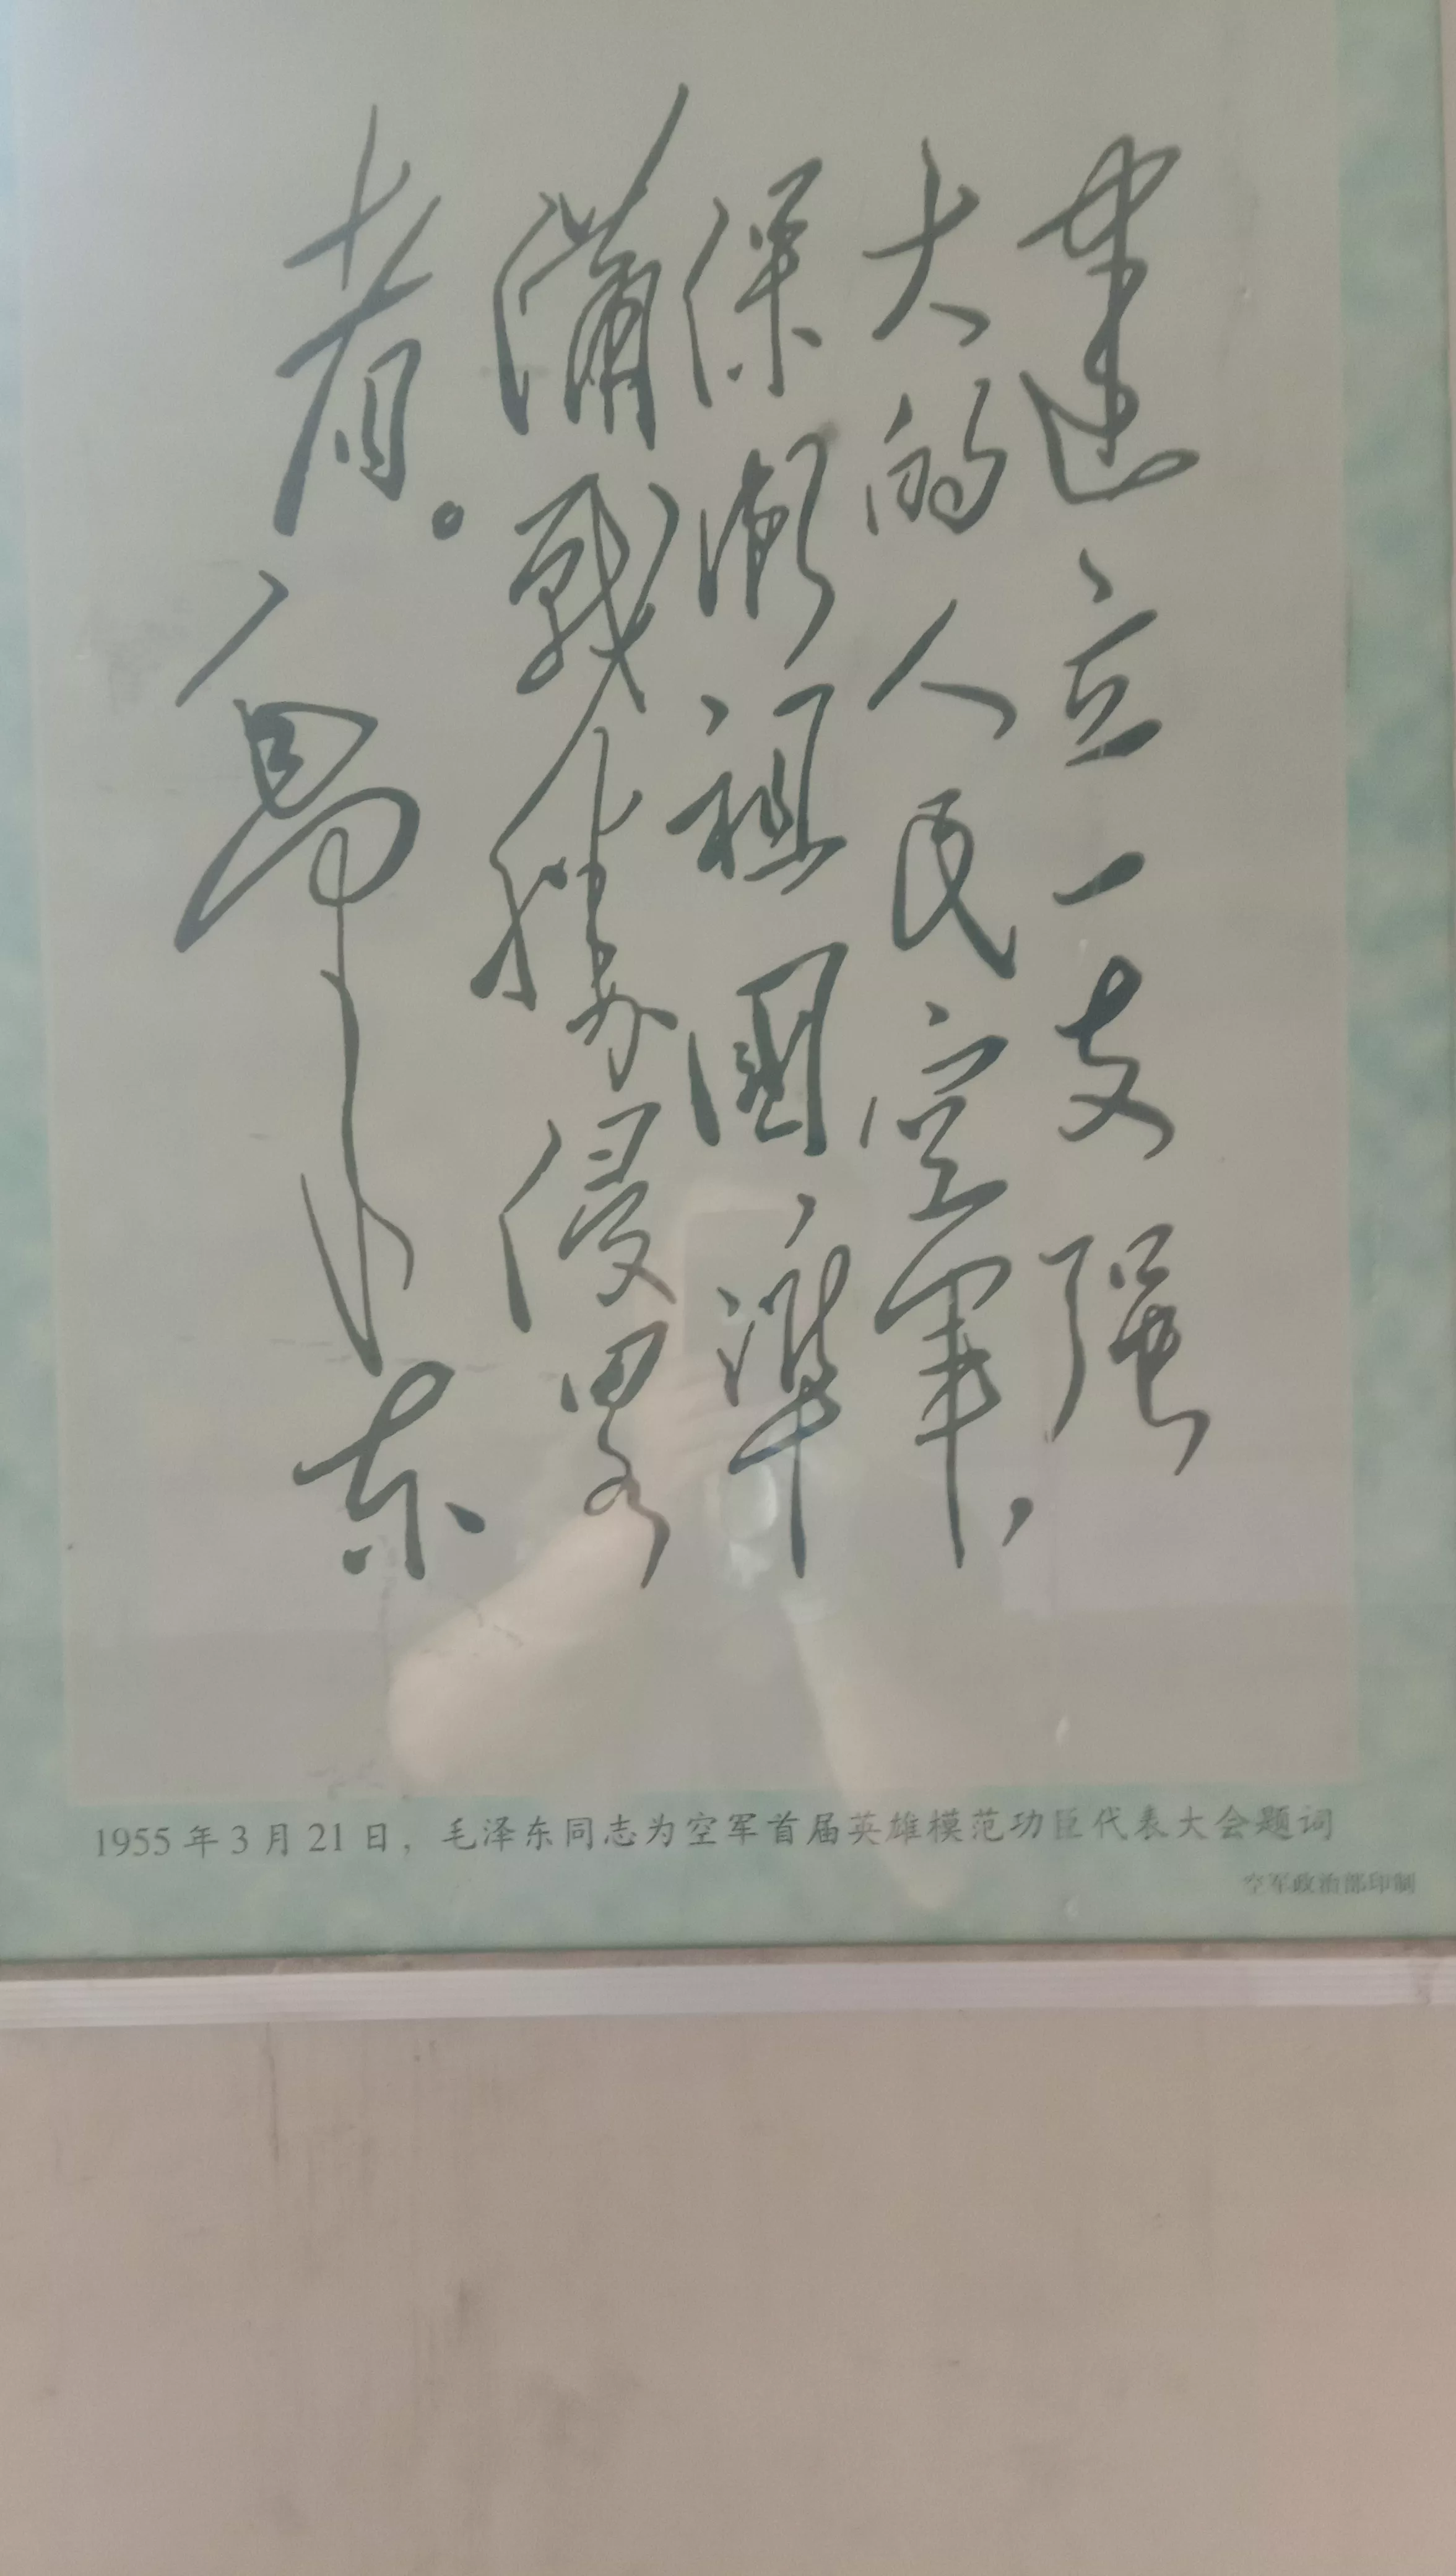 建立一支强
大的人民空军，
保衛祖國，準
備戰勝侵畧
者。
毛泽东
1955年3月21日，毛泽东同志为空军首届英雄模范功臣代表大会题词
空军政治部印制